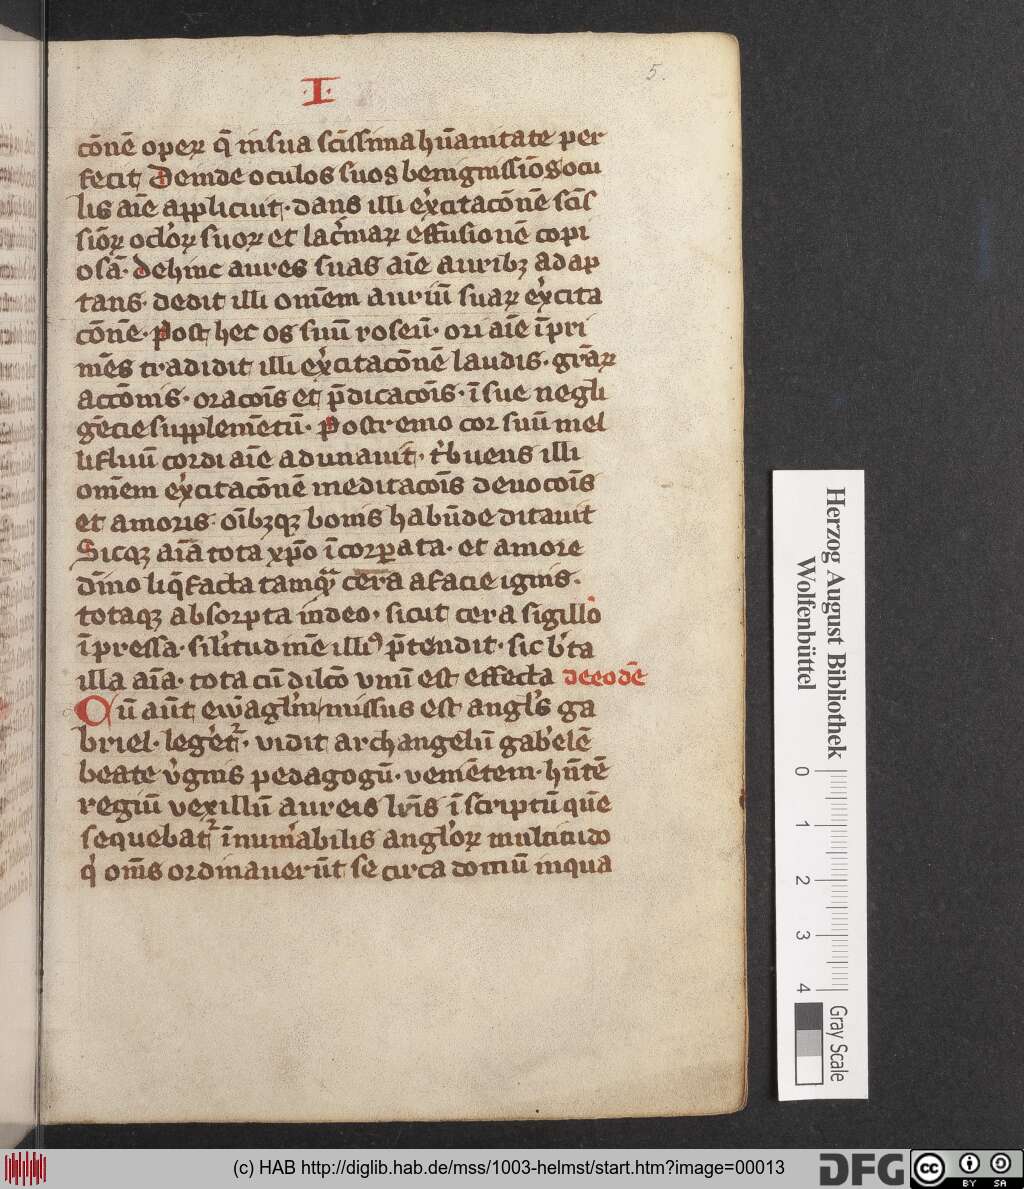 I
5.
cōnē oper̄ꝝ q̄ in sua sc̄issima hūanitate per
fecit Deinde oculos suos benignissīos ocu
lis aīe applicuit · dans illi exc̓itacōnē sc̄is
siōꝝ oclo̓ꝝ suoꝝ et lac̓maꝝ effusionē copi
osā · dehinc aures suas aīe auribꝫ adap
tans · dedit illi om̄em auriū suaꝝ exc̓ita
cōnē · post hec os suū roseū · ori aīe īpri
mēs tradidit illi exc̓itacōnē laudis · gr̄aꝝ
accōnis · orac̄ois et p̄dicac̄ois · ī sue negli
gēcie supplemētū · Postremo cor suū mel
lifluū cordi aīe adunauit · tͥbuens illi
om̄em exc̓itacōnē meditac̄ois deuoc̄ois
et amoris · oībꝫqꝫ bonis habūde ditauit
Sicqꝫ aīa tota xp̄o īcorꝑata · et amore
diu̅no liq̄facta tamqͣ cera a facie ignis ·
totaqꝫ absorpta in deo · sicut cera sigillo
īpressa · sil̓itudinē illiꝰ p̄tendit · sic b̓ta
illa aīa · tota cū dilc̄o vnū est effecta de eodē
Cū aūt ewāgl̓m missus est angl̓s ga
briel · leg̓et᷑ · vidit archangelū gab̓elē
beate v̓ginis pedagogū · venētem · hn̄tē
regiū vexillū aureis lr̄is īscriptū quē
sequebat᷑ īnum̓abilis angl̓oꝝ multitudo
qͥ om̄s ordinauerūt se circa domū in qua
Herzog August Bibliothek
Wolfenbüttel
0 1 2 3 4
Gray Scale
(c) HAB http://diglib.hab.de/mss/1003-helmst/start.htm?image=00013
DFG
cc BY SA